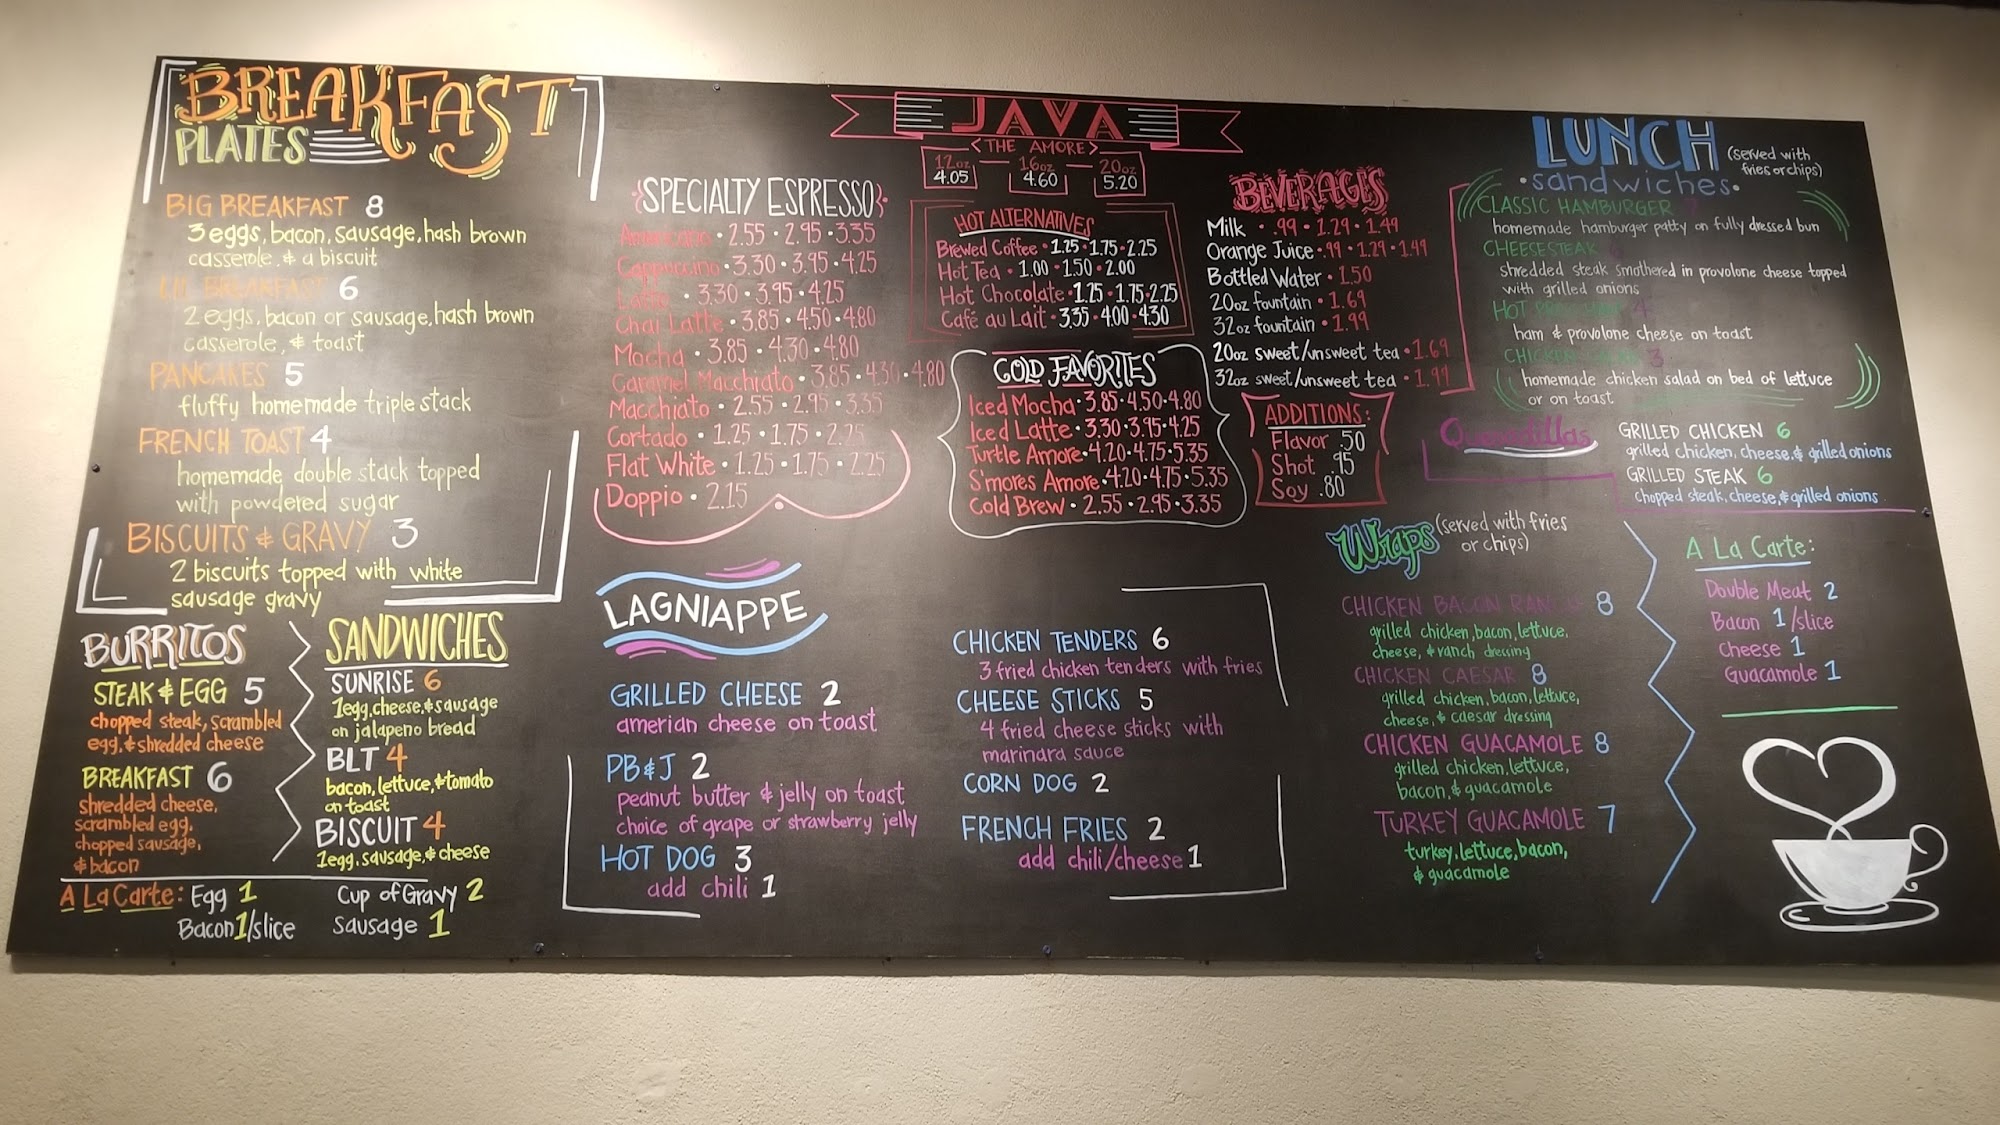 BREAKFAST
PLATES
BIG BREAKFAST 8
3 eggs, bacon, sausage, hash brown
casserole, & a biscuit
LIL BREAKFAST 6
2 eggs, bacon or sausage, hash brown
casserole, & toast
PANCAKES 5
fluffy homemade triple stack
FRENCH TOAST 4
homemade double stack topped
with powdered sugar
BISCUITS & GRAVY 3
2 biscuits topped with white
sausage gravy
BURRITOS
STEAK & EGG 5
chopped steak, scrambled
egg, & shredded cheese
BREAKFAST 6
shredded cheese,
scrambled egg,
chopped sausage,
& bacon
SANDWICHES
SUNRISE 6
1 egg, cheese, & sausage
on jalapeno bread
BLT 4
bacon, lettuce, & tomato
on toast
BISCUIT 4
1 egg, sausage, & cheese
A La Carte: Egg 1 Cup of Gravy 2
Bacon 1/slice Sausage 1
JAVA
<THE AMORE>
12oz 16oz 20oz
4.05 4.60 5.20
SPECIALTY ESPRESSO
Americano • 2.55 • 2.95 • 3.35
Cappuccino • 3.30 • 3.95 • 4.25
Latte • 3.30 • 3.95 • 4.25
Chai Latte • 3.85 • 4.50 • 4.80
Mocha • 3.85 • 4.30 • 4.80
Caramel Macchiato • 3.85 • 4.30 • 4.80
Macchiato • 2.55 • 2.95 • 3.35
Cortado • 1.25 • 1.75 • 2.25
Flat White • 1.25 • 1.75 • 2.25
Doppio • 2.15
HOT ALTERNATIVES
Brewed Coffee • 1.25 • 1.75 • 2.25
Hot Tea • 1.00 • 1.50 • 2.00
Hot Chocolate • 1.25 • 1.75 • 2.25
Café au Lait • 3.35 • 4.00 • 4.30
COLD FAVORITES
Iced Mocha • 3.85 • 4.50 • 4.80
Iced Latte • 3.30 • 3.95 • 4.25
Turtle Amore • 4.20 • 4.75 • 5.35
S'mores Amore • 4.20 • 4.75 • 5.35
Cold Brew • 2.55 • 2.95 • 3.35
BEVERAGES
Milk • .99 • 1.29 • 1.49
Orange Juice • .99 • 1.29 • 1.49
Bottled Water • 1.50
20oz fountain • 1.69
32oz fountain • 1.99
20oz sweet/unsweet tea • 1.69
32oz sweet/unsweet tea • 1.99
ADDITIONS:
Flavor .50
Shot .95
Soy .80
LAGNIAPPE
GRILLED CHEESE 2
amerian cheese on toast
PB & J 2
peanut butter & jelly on toast
choice of grape or strawberry jelly
HOT DOG 3
add chili 1
CHICKEN TENDERS 6
3 fried chicken tenders with fries
CHEESE STICKS 5
4 fried cheese sticks with
marinara sauce
CORN DOG 2
FRENCH FRIES 2
add chili/cheese 1
LUNCH
(served with
fries or chips)
•sandwiches•
CLASSIC HAMBURGER
homemade hamburger patty on fully dressed bun
CHEESESTEAK
shredded steak smothered in provolone cheese topped
with grilled onions
HOT 4
ham & provolone cheese on toast
CHICKEN SALAD 3
homemade chicken salad on bed of lettuce
or on toast
Quesadillas
GRILLED CHICKEN 6
grilled chicken, cheese, & grilled onions
GRILLED STEAK 6
chopped steak, cheese, & grilled onions
Wraps (served with fries
or chips)
CHICKEN BACON RANCH 8
grilled chicken, bacon, lettuce,
cheese, & ranch dressing
CHICKEN CAESAR 8
grilled chicken, bacon, lettuce,
cheese, & caesar dressing
CHICKEN GUACAMOLE 8
grilled chicken, lettuce,
bacon, & guacamole
TURKEY GUACAMOLE 7
turkey, lettuce, bacon,
& guacamole
A La Carte:
Double Meat 2
Bacon 1/slice
Cheese 1
Guacamole 1